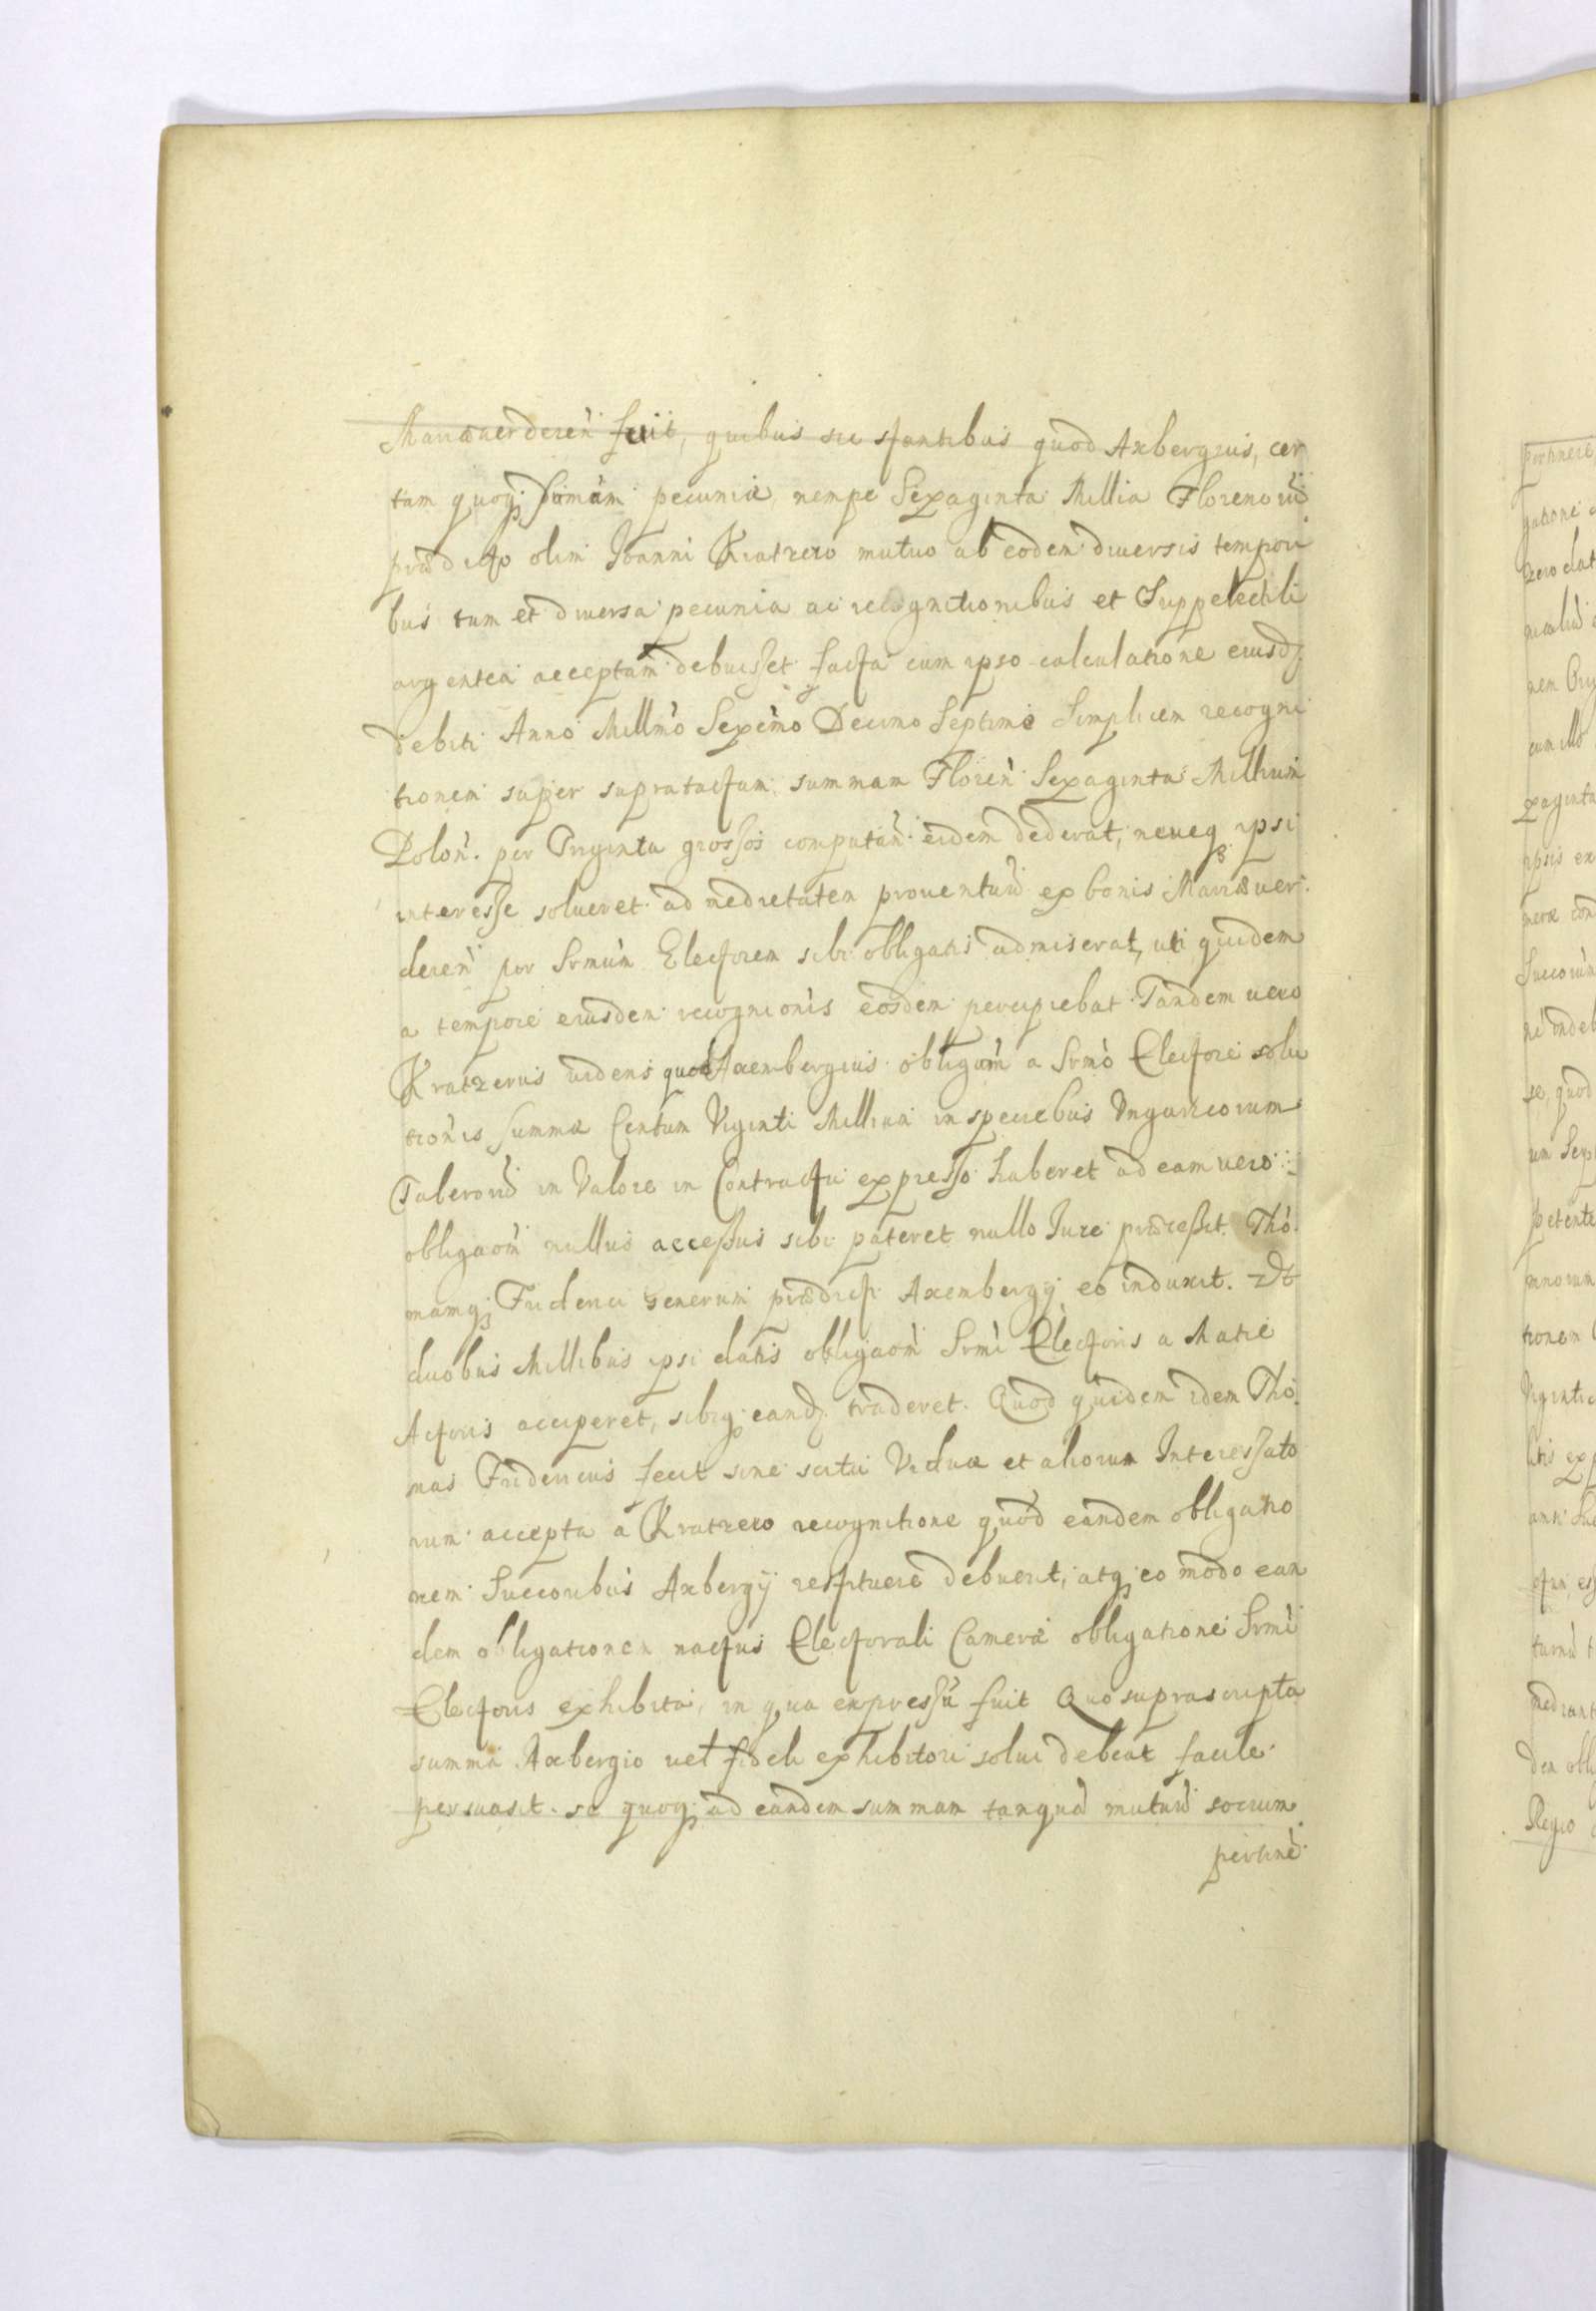 Mariæuerderen̄ fuit, quibus sic stantibus quod Axbergius, cer
tam quoq; som̄am pecuniæ, nempe Sexaginta Millia Florenorū
prædicto olim Joanni Kratzero mutuo ab eodem diuersis tempori
bus tum et diuersa pecunia ac recognitionibus et Suppelectili
argentea acceptam debuisset facta cum ipso calculatione eiusd;
debiti Anno Millm̄o Sexc̄mo Decimo Septimo Simplicem recogni
tionem super supratactam summam Floren̄ Sexaginta Millium
Polon̄. per Triginta grossos computan̄ eidem dederat, neueq; ipsi
interesse solueret ad medietatem prouentuū ex bonis Mariæuer
deren̄ per Srm̄um Electorem sibi obligatis admiserat, uti quidem
a tempore eiusdem recognīonis eosdem percipiebat. Tandem uero
Kratzerus uidens quod Axembergius obligaōm a Srm̄o Electore solu
tionis summæ Centum Viginti Millium in speciebus Vngaricorum
Talerorū in Valore in Contractu expresso haberet ad eam uero
obligaōm nullus accessus sibi pateret nullo Jure processit. Tho
mamq; Friderici generum prædicti Axembergij eo induxit. Vt
duobus Millibus ipsi datis obligaōm Srm̄i Electoris a Matre
Actoris acciperet, sibiq; eand; traderet. Quod quidem idem Tho
mas Fridericus fecit sine scitu Viduæ et aliorum Interessato
rum accepta a Kratzero recognitione quod eandem obligatio
nem Succoribus Axbergij restituere debuerit, atq; eo modo ean
dem obligationem nactus Electorali Cameræ obligatione Srm̄i
Electoris exhibita, in qua expressū fuit Quo suprascripta
summa Axbergio uel fideli exhibitori solui debeat facile
persuasit. se quoq; ad eandem summam tanquā mutuū socium
pertine